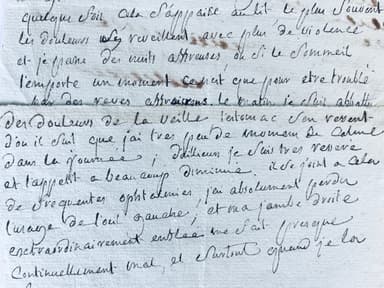 quelque soit cela s'appaise au lit le plus souvent
les douleurs se reveillent avec plus de violence
et je passe des nuits affreuses ou si le sommeil
l'emporte un moment ce n'est que pour etre troublé
par des reves affreux. le matin je suis abbattu
des douleurs de la veille l'estomac s'en ressent
d'ou il suit que j'ai tres peu de momens de calme
dans la journée ; d'ailleurs je suis tres reservé
et l'appetit a beaucoup diminué. il se joint a cela
de frequentes ophtalmies j'ai absolument perdu
l'usage de l'œil gauche ; et ma jambe droite
extraordinairement enflée me fait presque
continuellement mal, et surtout quand je la